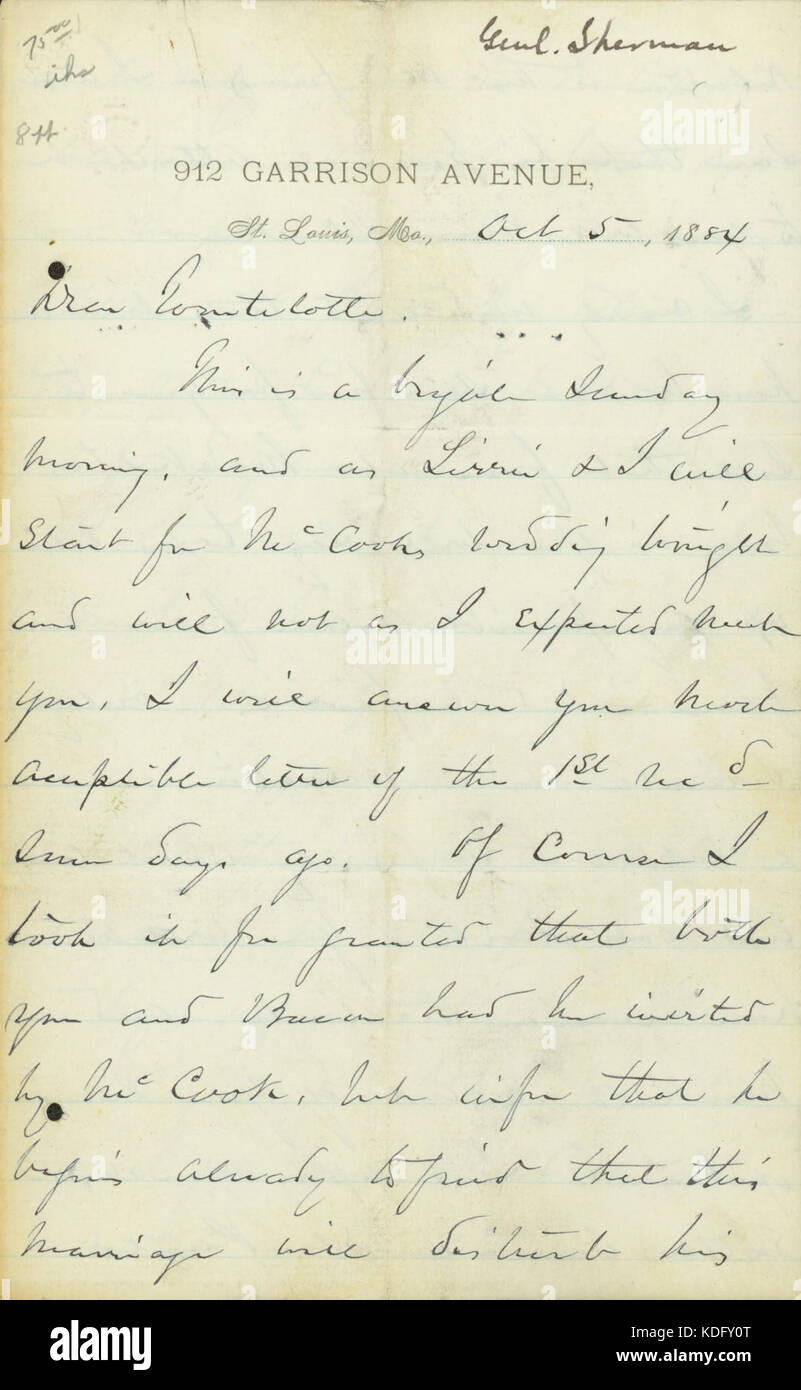 75.00
8 tt
Genl. Sherman
912 GARRISON AVENUE,
St. Louis, Mo., Oct 5, 1884
Dear Tourtelotte.
This is a bright Sunday
morning, and as Lizzie & I will
start for McCooks wedding tonight
and will not as I expected meet
you, I will answer your most
acceptible letter of the 1st rec d
some days ago. Of Course I
took it for granted that both
you and Bacon had been invited
by McCook, but infer that he
begins already to find that this
marriage will disturb his
alamy
alamy
Image ID: KDFY0T
www.alamy.com